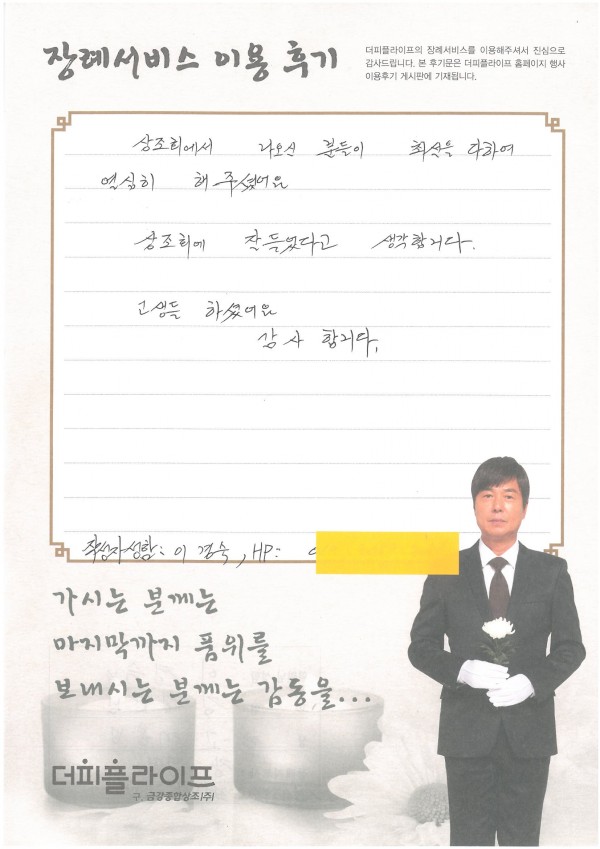 장례서비스 이용 후기
더피플라이프의 장례서비스를 이용해주셔서 진심으로
감사드립니다. 본 후기문은 더피플라이프 홈페이지 행사
이용후기 게시판에 기재됩니다.
상조회에서 나오신 분들이 최선을 다하여
열심히 해 주셨어요
상조회에 잘 들었다고 생각합니다.
고생들 하셨어요
감사 합니다.
작성자성함: 이경숙, HP: 0
가시는 분께는
마지막까지 품위를
보내시는 분께는 감동을...
더피플라이프
구 금강종합상조(주)